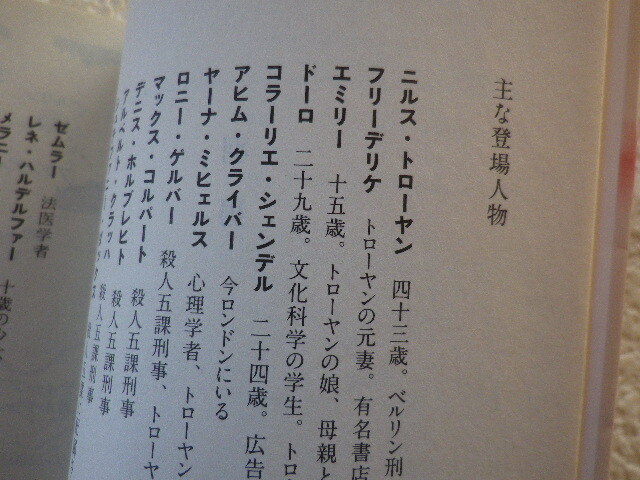 主な登場人物
ニルス・トローヤン 四十三歳。ベルリン刑
フリーデリケ トローヤンの元妻。有名書店
エミリー 十五歳。トローヤンの娘、母親と
ドーロ 二十九歳。文化科学の学生。トロ
コラーリエ・シェンデル 二十四歳。広告
アヒム・クライバー 今ロンドンにいる
ヤーナ・ミヒェルス 心理学者、トローヤン
ロニー・ゲルバー 殺人五課刑事、トローヤ
マックス・コルバート 殺人五課刑事
デニス・ホルブレヒト 殺人五課刑事
アルベルト・クラッハ 殺人五課刑事
ゼムラー 法医学者
レネ・ハルデルファー
メラニー 十歳の